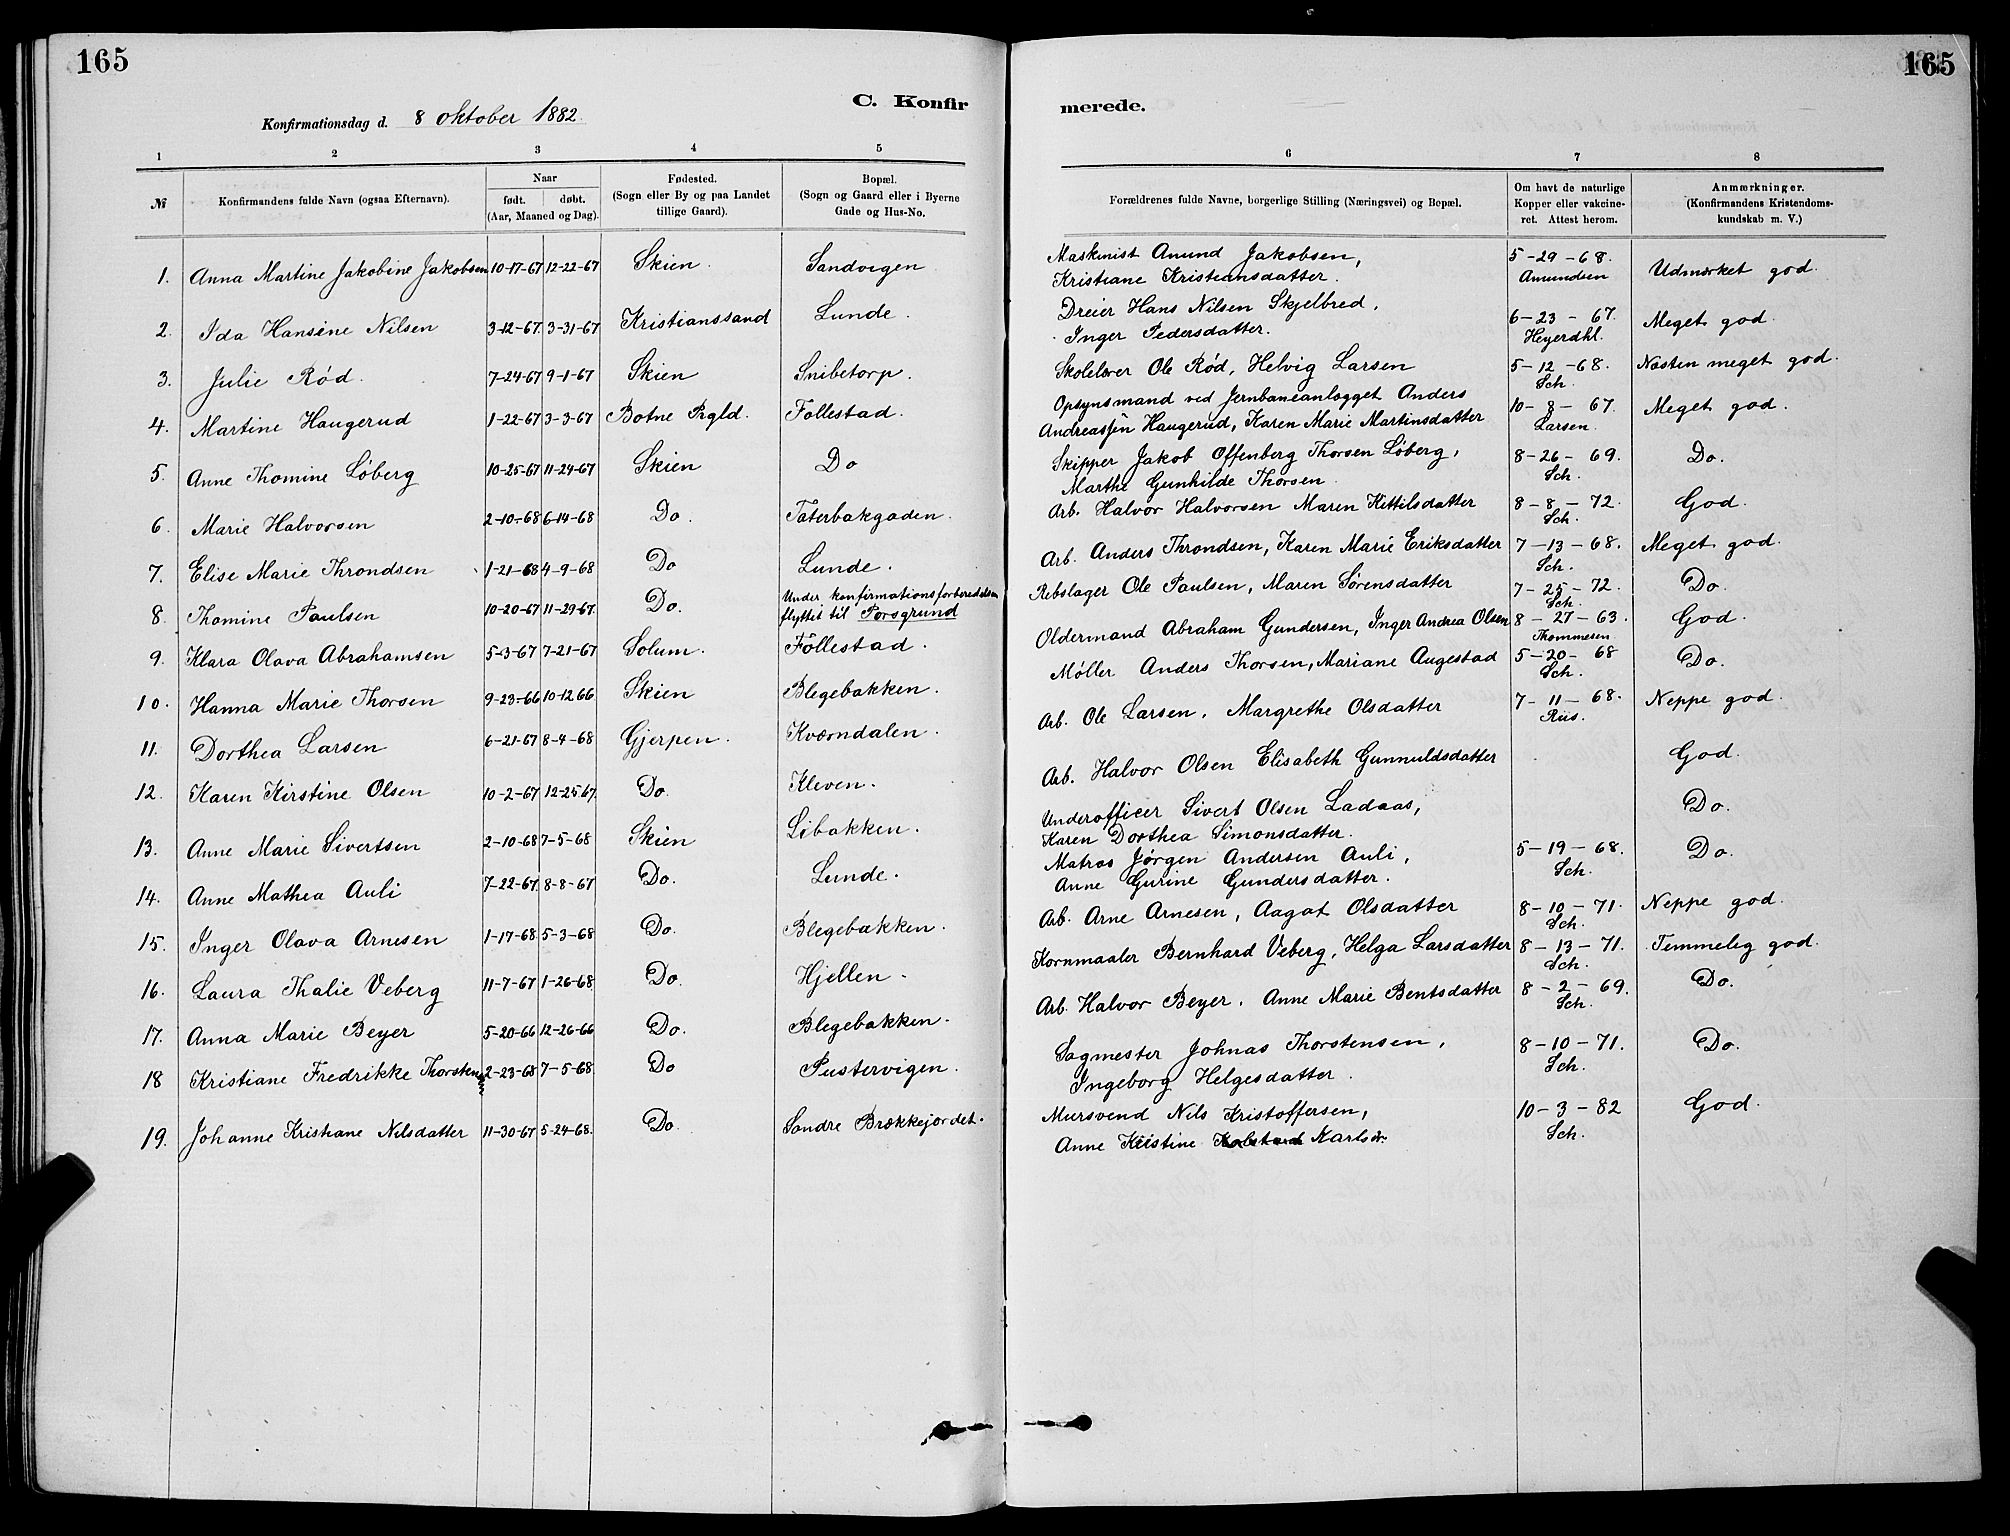 165
165
C. Konfirmerede.
Konfirmationsdag d. 8 oktober 1882.
1 2 3 4 5 6 7 8
№ | Konfirmandens fulde Navn (ogsaa Efternavn). | Naar født. døbt. (Aar, Maaned og Dag). | Fødested. (Sogn eller By og paa Landet tillige Gaard). | Bopæl. (Sogn og Gaard eller i Byerne Gade og Hus-No. | Forældrenes fulde Navne, borgerlige Stilling (Næringsvei) og Bopæl. | Om havt de naturlige Kopper eller vakcineret. Attest herom. | Anmærkninger. (Konfirmandens Kristendomskundskab m. V.)
1. Anna Martine Jakobine Jakobsen 10-17-67 12-22-67 Skien. Sandvigen Maskinist Amund Jakobsen, Kristiane Kristensdatter. 5-29-68. Amundsen Udmærket god.
2. Ida Hansine Nilsen 3-12-67. 3-31-67 Kristianssand Lunde. Dreier Hans Nilsen Skjelbred, Inger Pedersdatter. 6-23-67. Heyerdhl. Meget god.
3. Julie Rød. 7-24-67 9-1-67 Skien Snibetorp. Skolelærer Ole Rød, Helvig Larsen 5-12-68. Sch. Næsten meget god.
4. Martine Haugerud 1-22-67 3-3-67 Botne Prgld. Follestad. Opsynsmand ved Jernbaneanlægget Anders Andreassen Haugerud, Karen Marie Martinsdatter 10-8-67. Larsen. Meget god.
5. Anne Thomine Løberg 10-25-67 11-24-67 Skien Do Skipper Jakob Offenberg Thorsen Løberg, Marthe Gunhilde Thorsen. 8-26-69. Sch. Do.
6. Marie Halvorsen 2-10-68 6-14-68 Do. Taterbakgaden. Arb. Halvor Halvorsen Maren Kittilsdatter 8-8-72. Sch. God.
7. Elise Marie Throndsen 1-21-68 4-9-68 Do Lunde. Arb. Anders Throndsen, Karen Marie Eriksdatter 7-13-68. Sch. Meget god.
8. Thomine Paulsen 10-20-67 11-29-67. Do. Under konfirmationsforberedelsen flyttet til Porsgrund Rebslager Ole Paulsen, Maren Sørensdatter 7-25-72. Sch. Do.
9. Klara Olava Abrahamsen 5-3-67 7-21-67 Solum. Follestad. Oldermand Abraham Gundersen, Inger Andrea Olsen 8-27-63. Thommesen God.
10. Hanna Marie Thorsen 9-23-66 10-12 66 Skien Blegebakken. Møller Anders Thorsen, Mariane Augestad 5-20-68 Sch. Do.
11. Dorthea Larsen 6-21-67 8-4-68 Gjerpen. Kværndalen. Arb. Ole Larsen, Margrethe Olsdatter 7-11-68. Riis. Neppe god.
12. Karen Kirstine Olsen 10-2-67 12-25 67. Do. Kleven. Arb. Halvor Olsen Elisabeth Gunnuldsdatter God.
13. Anne Marie Sivertsen 2-10-68 7-5-68 Skien Libakken. Underofficer Sivert Olsen Ladaas, Karen Dorthea Simonsdatter. Do.
14. Anne Mathea Auli 7-22-67. 8-8-67 Do. Lunde. Matros Jørgen Andersen Auli, Anne Gurine Gundersdatter. 5-19-68. Sch. Do.
15. Inger Olava Arnesen 1-17-68 5-3-68 Do. Blegebakken. Arb. Arne Arnesen, Aagot Olsdatter 8-10-71. Sch. Neppe god.
16. Laura Thalie Veberg 11-7-67 1-26-68 Do. Hjellen. Kornmaaler Bernhard Veberg, Helga Larsdatter 8-13-71. Sch. Temmelig god.
17. Anna Marie Beyer 5-20-66 12-26-66 Do. Blegebakken. Arb. Halvor Beyer. Anne Marie Bentsdatter 8-2-69. Sch. Do.
18 Kristiane Fredrikke Thorstensen 2-23-68 7-5-68 Do Pustervigen. Sagmester Johnas Thorstensen, Ingeborg Helgesdatter. 8-10-71. Sch. Do.
19. Johanne Kristiane Nilsdatter 11-30-67 5-24-68. Do. Søndre Brækkejordet. Mursvend Nils Kristoffersen, Anne Kristine Karlsdr. 10-3-82 Sch. God.